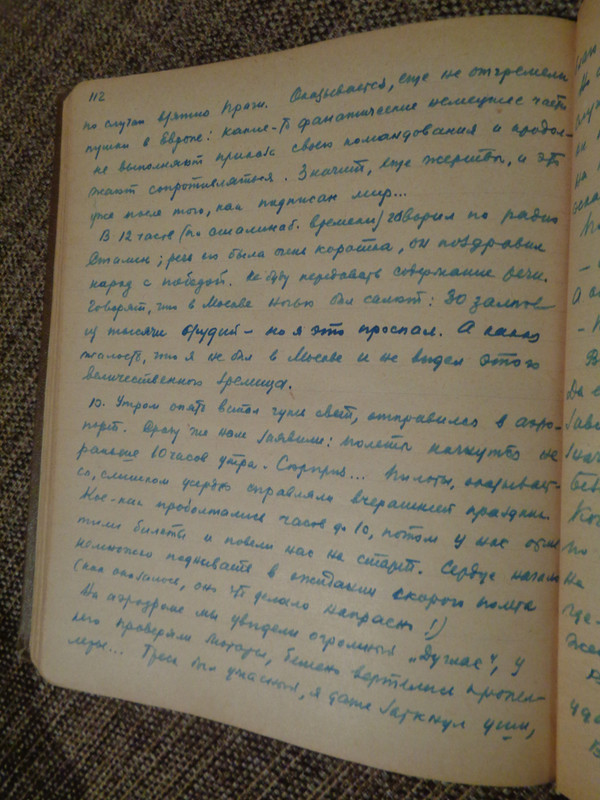 112
по случаю взятия Праги. Оказывается, еще не отгремели
пушки в Европе: какие-то фанатические немецкие части
не выполняют приказа своего командования и продол-
жают сопротивляться. Значит, еще жертвы, и это
уже после того, как подписан мир...
В 12 часов (по сталинаб. времени) говорил по радио
Сталин; речь его была очень коротка, он поздравил
народ с победой. Не буду передавать содержание речи.
Говорят, что в Москве ночью был салют: 30 залпов
из тысячи орудий – но я это проспал. А какая
жалость, что я не был в Москве и не видел этого
величественного зрелища.
10. Утром опять встал чуть свет, отправился в аэро-
порт. Сразу же нам заявили: полеты начнутся не
раньше 10 часов утра. Сюрприз... Пилоты, оказывает-
ся, слишком усердно справляли вчерашний праздник.
Кое-как проболтались часов до 10, потом у нас
тили билеты и повели нас на старт. Сердце начало
немножко подпевать в ожидании скорого полета
(как оказалось, оно это делало напрасно!)
На аэродроме мы увидели огромный „Дуглас", у
него проверяли моторы, бешено вертелись пропел-
леры... Треск был ужасный, я даже заткнул уши,